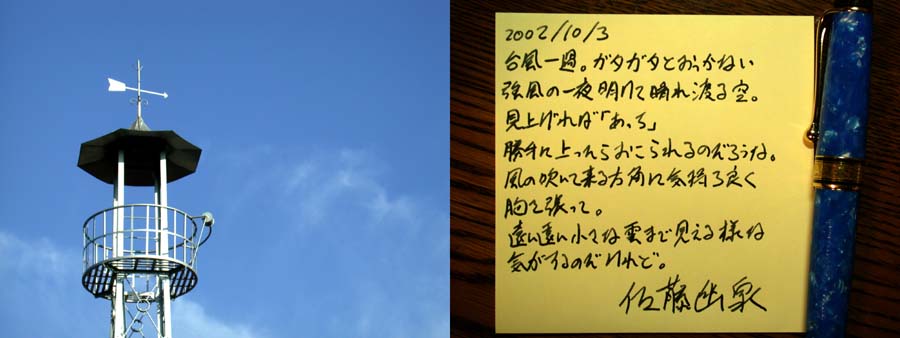 2002/10/3
台風一過。ガタガタとおっかない
強風の一夜明けて晴れ渡る空。
見上げれば「あっち」
勝手に上ったらおこられるのだろうな。
風の吹いて来る方角に気持ち良く
胸を張って。
遠い遠い小さな雲まで見える様な
気がするのだけれど。
佐藤幽泉